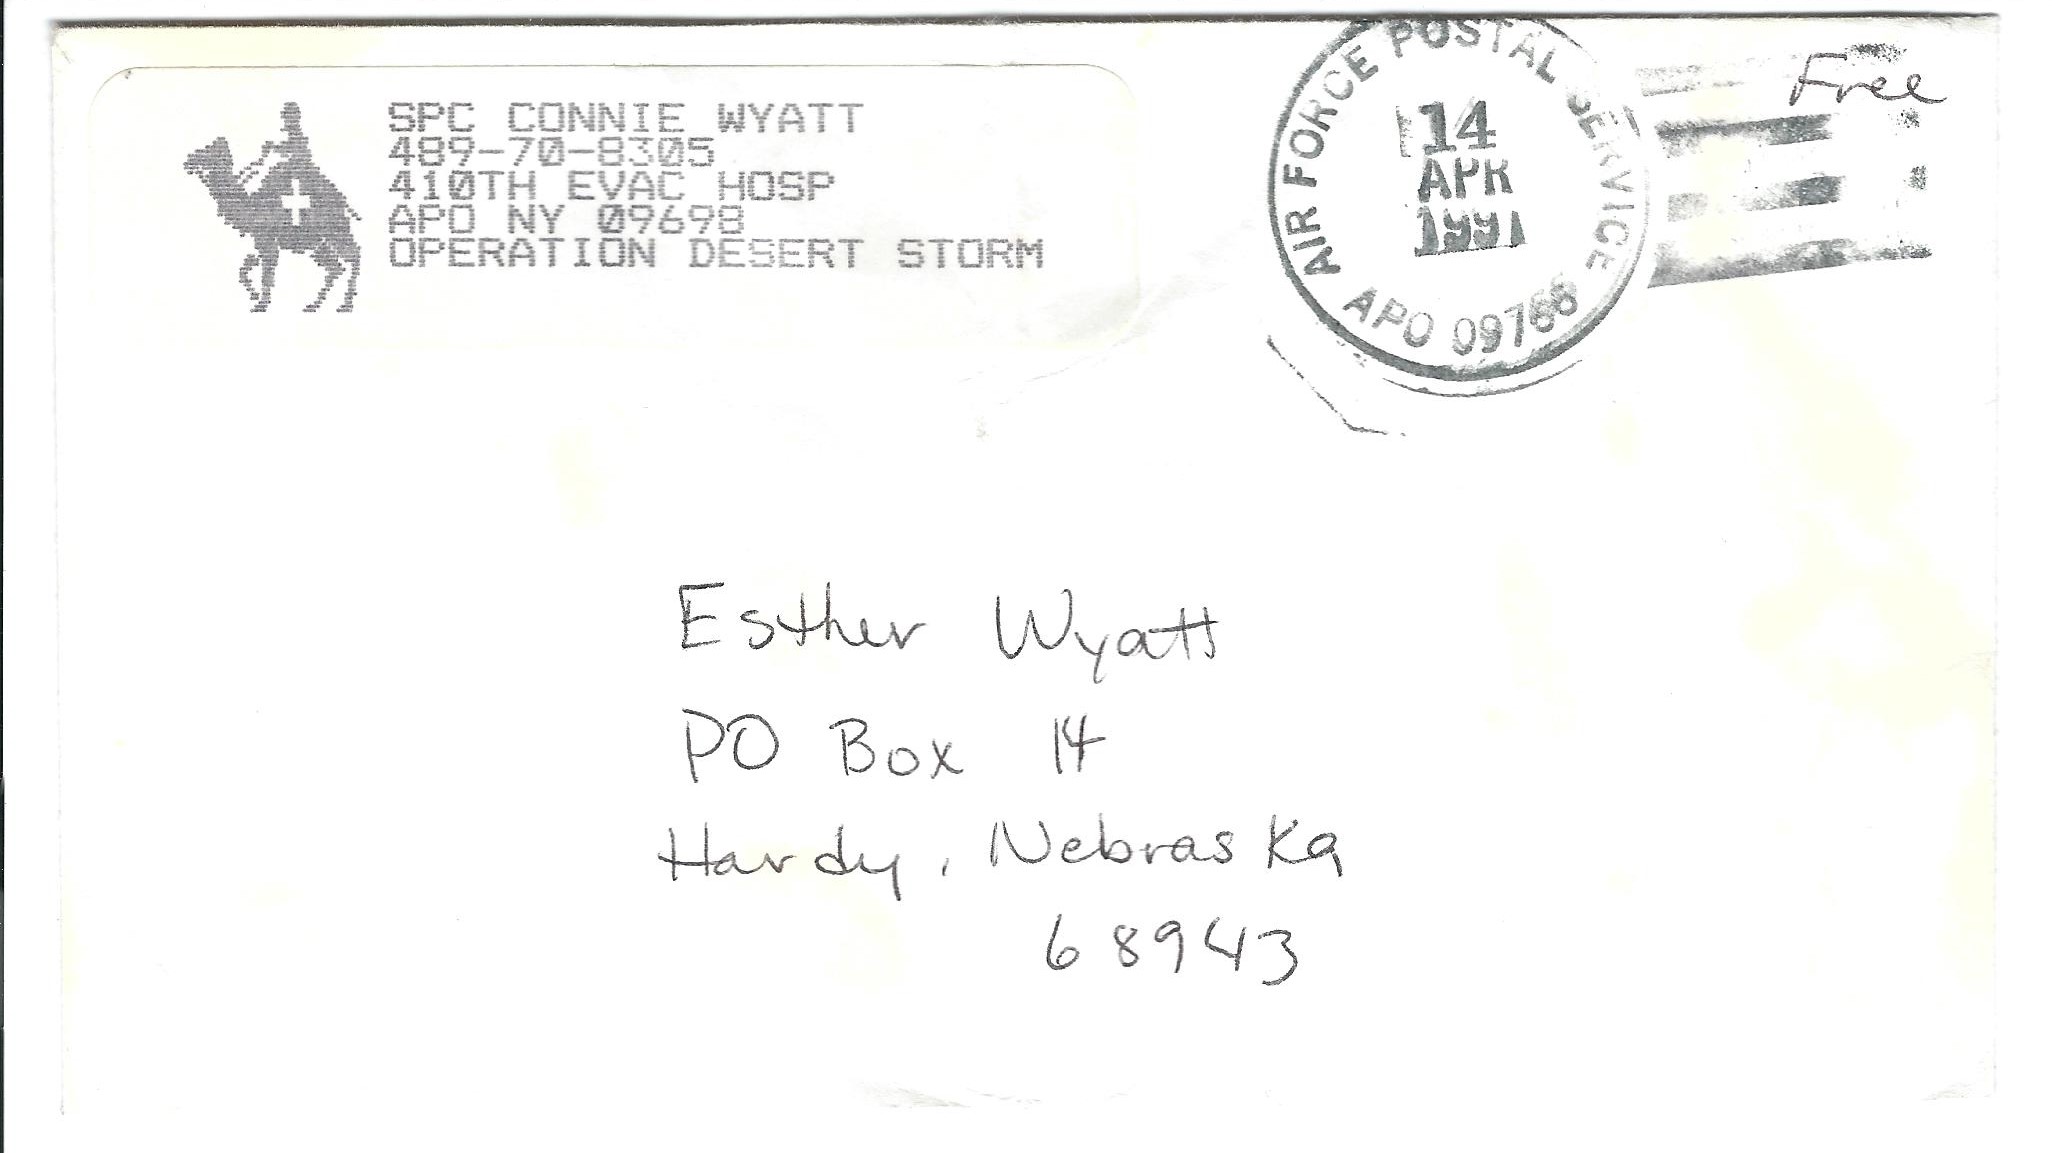 SPC CONNIE WYATT
489-70-8305
410TH EVAC HOSP
APO NY 09698
OPERATION DESERT STORM
AIR FORCE POSTAL SERVICE
14
APR
1991
APO 09768
Free
Esther Wyatt
PO Box 14
Hardy, Nebraska
68943